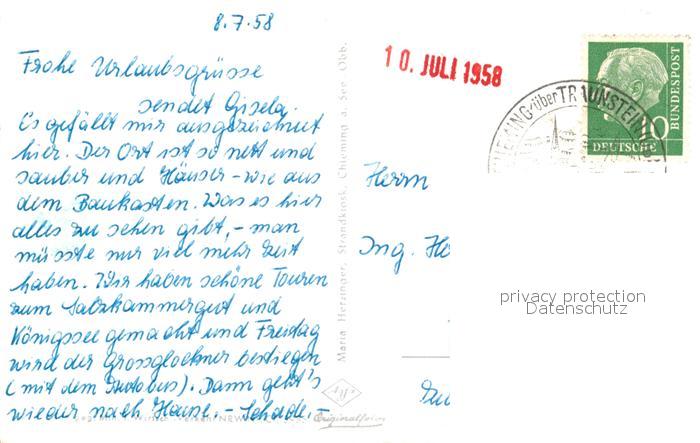 8.7.58
Frohe Urlaubsgrüsse
sendet Gisela.
Es gefällt mir ausgezeichnet
hier. Der Ort ist so nett und
sauber und Häuser - wie aus
dem Baukasten. Was es hier
alles zu sehen gibt, - man
müsste nur viel mehr Zeit
haben. Wir haben schöne Touren
zum Salzkammergut und
Königssee gemacht und Freitag
wird der Grossglockner bestiegen
(mit dem Autobus). Dann geht's
wieder nach Hause. - Schade. -
Maria Herzinger, Strandkiosk, Chieming a. See, Obb.
Originalfoto
10. JULI 1958
CHIEMING über TRAUNSTEIN
10
DEUTSCHE
BUNDESPOST
Herrn
Ing.
privacy protection
Datenschutz